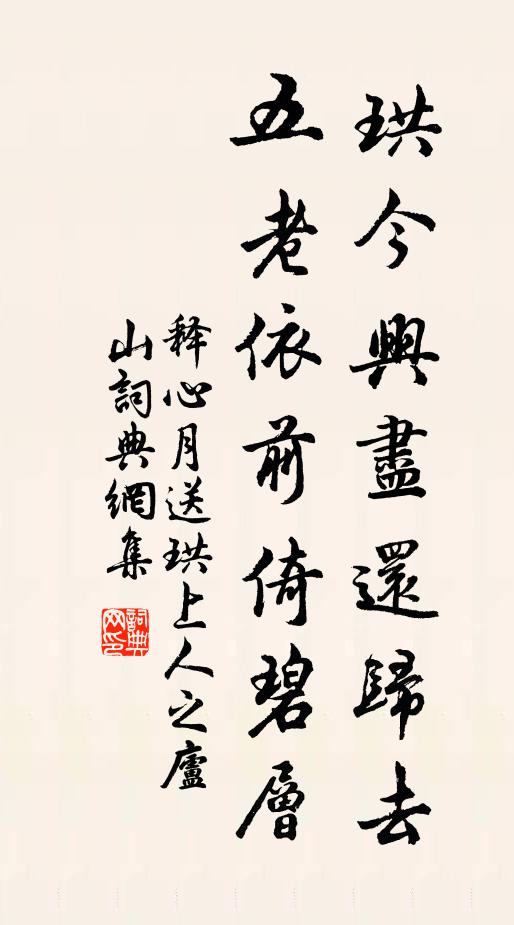 珙今興盡還歸去
五老依前倚碧層
释心月送珙上人之廬
山詞典網集
詞典网印